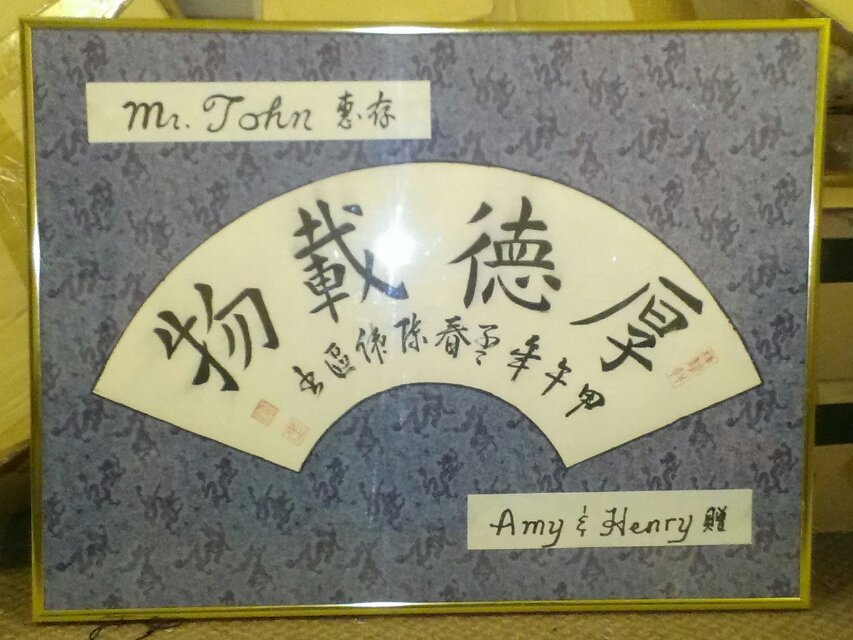 Mr. John 惠存
厚德載物
年孟春陳
書
Amy & Henry 贈